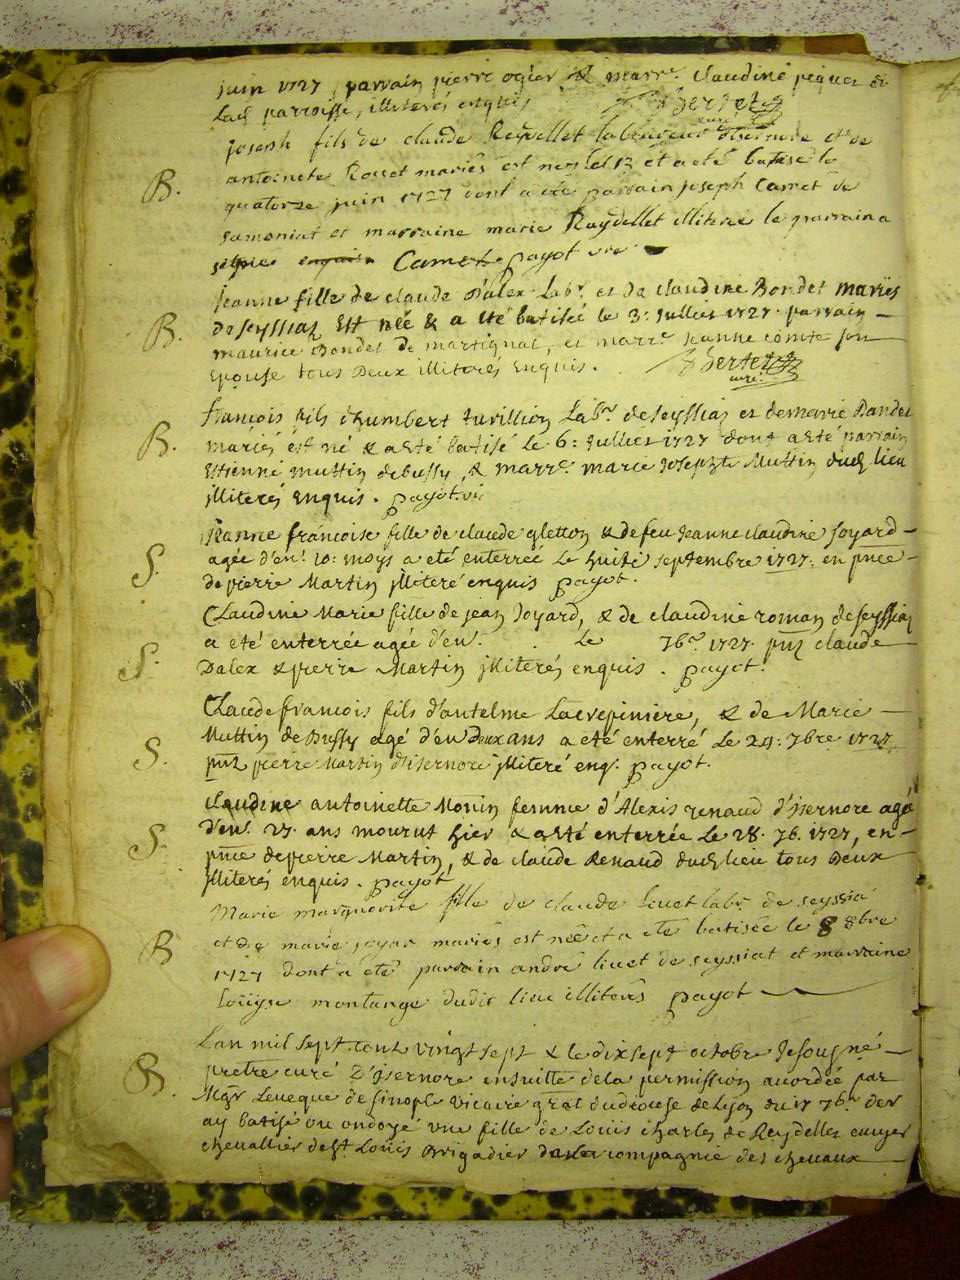 juin 1727, parrain pierre ogier & marre. claudine pequet de
lad. parroisse, illiterés enquis
curé
joseph fils de claude Reydellet laboureur disernore et de
B. antoinete Rouet mariés est ney le 13 et a eté batisé le
quatorze juin 1727 dont a eté parrain joseph Carret de
samoniat et marraine marie Reydellet illiterée le parrain a
signé enquis Carret payot vre
jeanne fille de claude Dalex labr. et de claudine Bondet mariés
B. de seyssiaz Est née & a eté batisée le 3: jullies 1727 parrain
maurice Bondet de martignat, et marre. jeanne comte son
Epouse tous Deux illiterés Enquis.
curé.
françois fils d'humbert turillion Labr. de seyssiaz et de marie Bandet
B. mariés est né & a eté batisé le 6: jullies 1727 dont a eté parrain
Estienne muttin de bussy, & marre. marie josephte Muttin dud. lieu
jlliterés Enquis. payot vic
jeanne francoise fille de claude gletton & de feu jeanne claudine joyard
S. agée d'en. 10: moys a eté enterrée Le huiti septembre 1727. en pnce
de pierre Martin jlliteré enquis payot.
CLaudine Marie fille de jean joyard, & de claudine roman de seyssiaz
a eté enterrée agée d'en. Le 7bre 1727. pnz claude
S. Dalex & pierre Martin jlliterés enquis. payot.
CLaude francois fils d'antelme Lacrepiniere, & de Marie
Muttin de Bussy agé d'en Deux ans a eté enterré Le 24: 7bre 1727
S. pnz pierre Martin d'isernore jlliteré enq. payot.
claudine antoinette Monin femme d'Alexis renaud d'jsernore agée
S. d'en. 27. ans mourut hier & a eté enterrée Le 28. 7b. 1727, en
pnce de pierre Martin, & de claude Renaud dud. lieu tous Deux
jlliterés enquis. payot
Marie marguerite fille de claude livet labr. de seyssia
B et de marie joyar mariés est née et a eté batisée le 8 8bre
1727 dont a eté parrain andré livet de seyssiat et marraine
loüyse montange dudit lieu illiterés payot
Lan mil sept cent vingt sept & le dix sept octobre je sousigné
B. pretre curé D'jsernore ensuitte de la permission accordée par
Mgr Leveque de sinople vicaire gral du diocese de Lyon du 17 7bre. der
ay batisé ou ondoyé une fille de Loüis charles de Reydellet ecuyer
chevallier de st. Loüis Brigadier dans la compagnie des chevaux